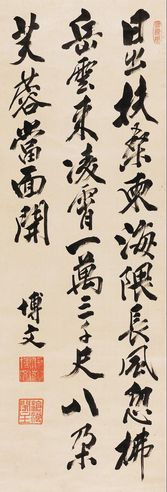 日出扶桑東海隈長風忽拂
岳雲来凌霄一萬三千尺八朶
芙蓉當面開
博文